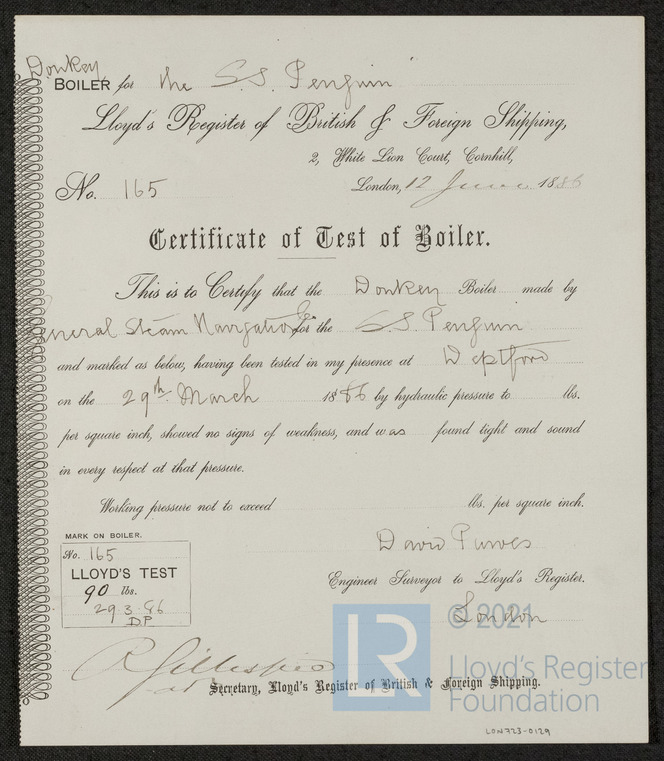 Donkey
BOILER for the S.S. Penguin
Lloyd's Register of British & Foreign Shipping,
2, White Lion Court, Cornhill,
No. 165 London, 12 June 1886
Certificate of Test of Boiler.
This is to Certify that the Donkey Boiler made by
General Steam Navigation Co for the S.S. Penguin
and marked as below, having been tested in my presence at Deptford
on the 29th March 1886 by hydraulic pressure to lbs.
per square inch, showed no signs of weakness, and was found tight and sound
in every respect at that pressure.
Working pressure not to exceed lbs. per square inch.
MARK ON BOILER.
No. 165
LLOYD'S TEST
90 lbs.
29.3.86
D.P.
David Purves
Engineer Surveyor to Lloyd's Register.
London
R Gillespie
Secretary, Lloyd's Register of British & Foreign Shipping.
LR
© 2021
Lloyd's Register
Foundation
LON723-0129